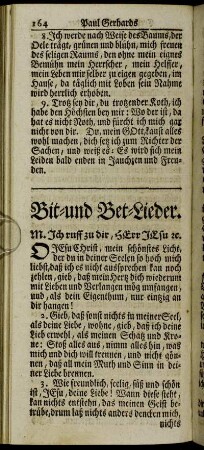 164 Paul Gerhards
8. Ich werde nach Weise des Baums, der
Oele trägt, grünen und blühn, mich freuen
des seligen Raums, den ohne mein eignes
Bemühn mein Herrscher, mein Helffer,
mein Leben mir selber zu eigen gegeben, im
Hause, da täglich mit Loben sein Nahme
wird herrlich erhoben.
9. Trotz sey dir, du trotzender Koth, ich
habe den Höchsten bey mir: Wo der ist, da
hat es nicht Noth, und fürcht ich mich gar
nicht vor dir. Du, mein GOtt, kanst alles
wohl machen, dich setz ich zum Richter der
Sachen, und weiß es: Es wird sich mein
Leiden bald enden in Jauchzen und Freu-
den.
Bit- und Bet-Lieder.
M. Ich ruff zu dir, HErr JEsu ꝛc.
O JEsu Christ, mein schönstes Licht,
der du in deiner Seelen so hoch mich
liebst, daß ich es nicht aussprechen kan noch
zehlen, gieb, daß mein Hertz dich wiederum
mit Lieben und Verlangen mög umfangen,
und als dein Eigenthum, nur einzig an
dir hangen!
2. Gieb, daß sonst nichts in meiner Seel,
als deine Liebe, wohne, gieb, daß ich deine
Lieb erwehl, als meinen Schatz und Kro-
ne: Stoß alles aus, nimm alles hin, was
mich und dich will trennen, und nicht gön-
nen, daß all mein Muth und Sinn in dei-
ner Liebe brennen.
3. Wie freundlich, seelig, süß und schön
ist, JEsu, deine Liebe! Wann diese steht,
kan nichts entstehn, das meinen Geist be-
trübe, drum laß nichts anders dencken mich,
nichts